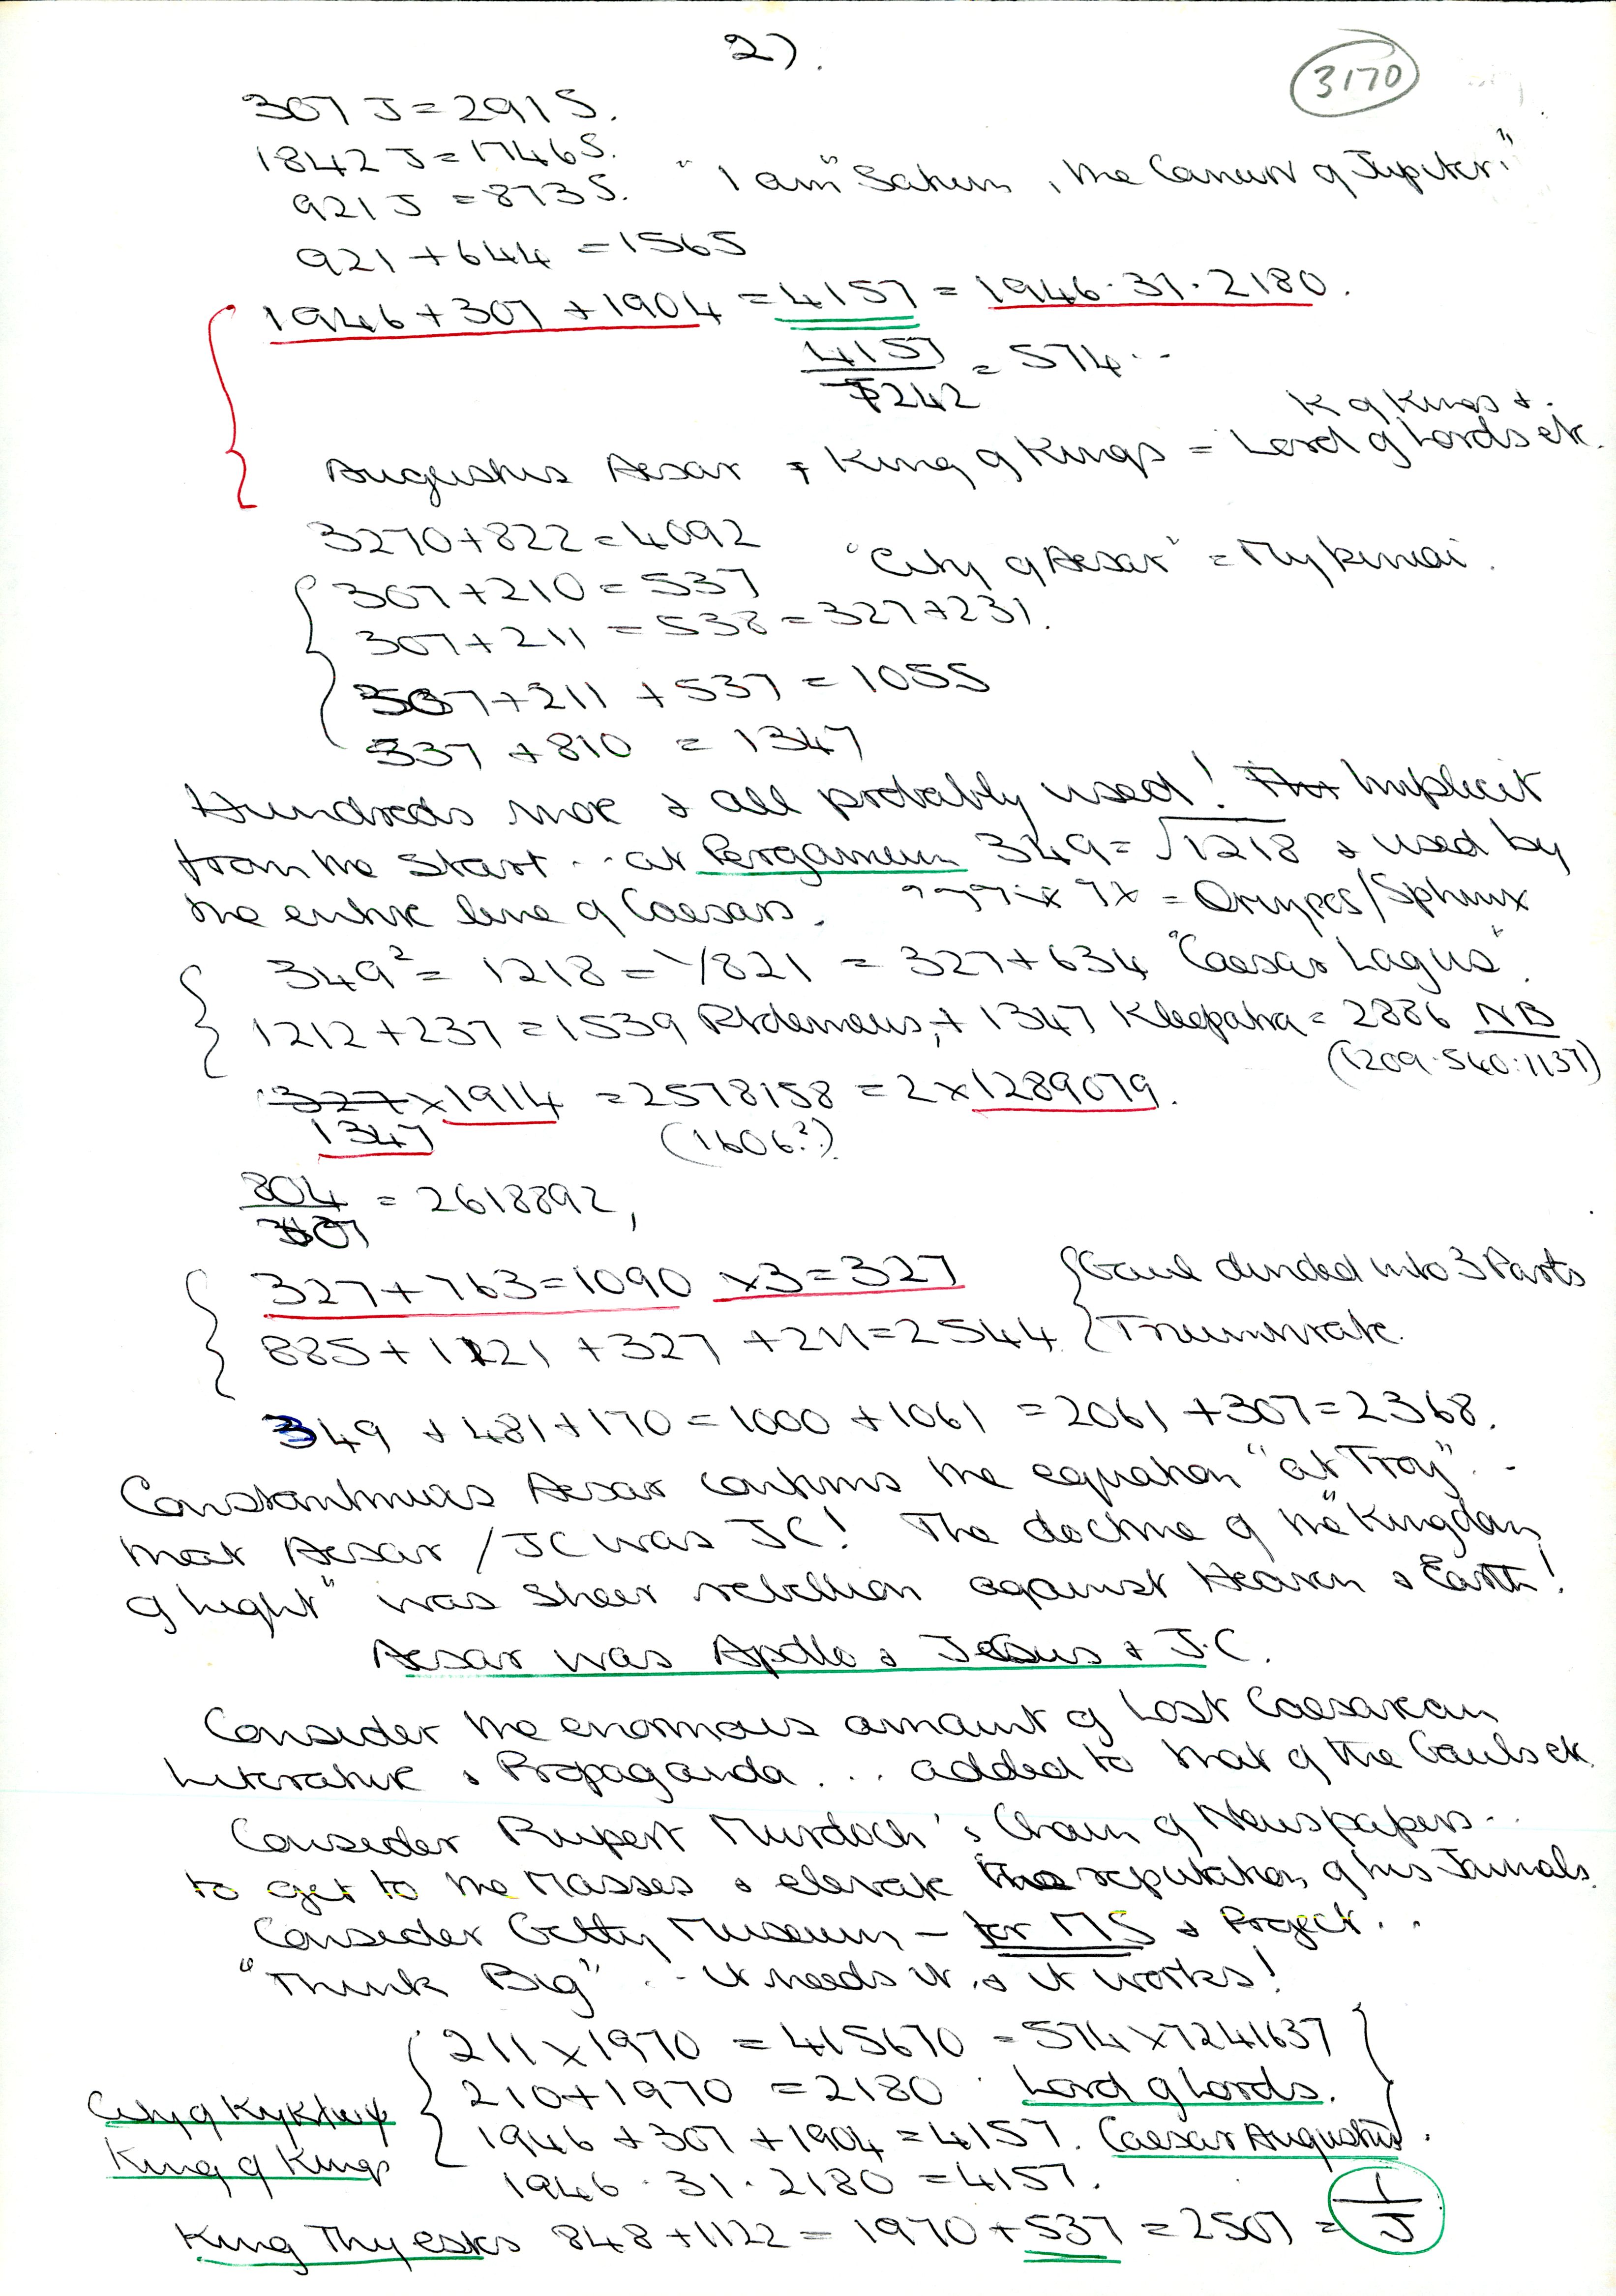 2).
3170
307 J = 291 S.
1842 J = 1746 S.
921 J = 873 S. "I am" Saturn, the Consort of Jupiter."
921 + 644 = 1565
1946 + 307 + 1904 = 4157 = 1946 · 31 · 2180.
4157 / 7242 = 574 ..
K of Kings &.
Augustus Aesar + King of Kings = Lord of Lords etc.
3270 + 822 = 4092
307 + 210 = 537 "City of Aesar" = Mykenai.
307 + 211 = 538 = 327 + 231.
307 + 211 + 537 = 1055
537 + 810 = 1347
Hundreds more & all probably used! Implicit
from the Start .. at Pergamum 349 = √1218 & used by
the entire line of Caesars. = /Sphinx
349² = 1218 = 1/821 = 327 + 634 "Caesar Lagus".
1212 + 237 = 1539 Ptolemaeus, + 1347 Kleopatra = 2886 NB
(1209 · 540 : 1137)
327 × 1914 = 2578158 = 2 × 1289079.
1347 (1606²?)
804 / 307 = 2618892,
327 + 763 = 1090 × 3 = 327 { Gaul divided into 3 Parts
885 + 1121 + 327 + 211 = 2544 { Triumvirate.
349 + 481 + 170 = 1000 + 1061 = 2061 + 307 = 2368.
Constantinus Aesar confirms the equation "at Troy" ..
that Aesar / JC was JC! The doctrine of the "Kingdom
of Light" was sheer rebellion against Heaven & Earth!
Aesar was Apollo & Jesus & J.C.
Consider the enormous amount of Lost Caesarean
Literature & Propaganda ... added to that of the Gauls etc.
Consider Rupert Murdoch's Chain of Newspapers ..
to get to the Masses & elevate the reputation of his Journals.
Consider Getty Museum – for MS & Project ..
"Think Big" .. it needs it & it works!
211 × 1970 = 415670 = 574 × 7241637
210 + 1970 = 2180 . Lord of Lords.
City of
1946 + 307 + 1904 = 4157. Caesar Augustus.
King of Kings
1946 · 31 · 2180 = 4157.
King Thyestes 848 + 1122 = 1970 + 537 = 2507 = 1/J